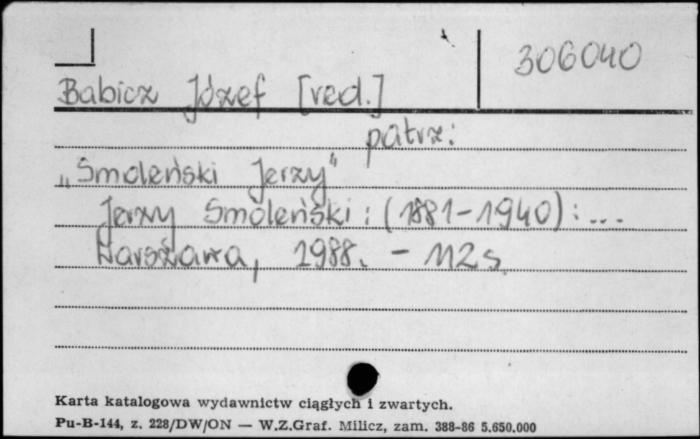 306040
Babicz Józef [red.]
patrz:
„Smoleński Jerzy"
Jerzy Smoleński : (1881-1940) : ...
Warszawa, 1988. - 112 s.
Karta katalogowa wydawnictw ciągłych i zwartych.
Pu-B-144, z. 228/DW/ON — W.Z.Graf. Milicz, zam. 388-86 5.650.000